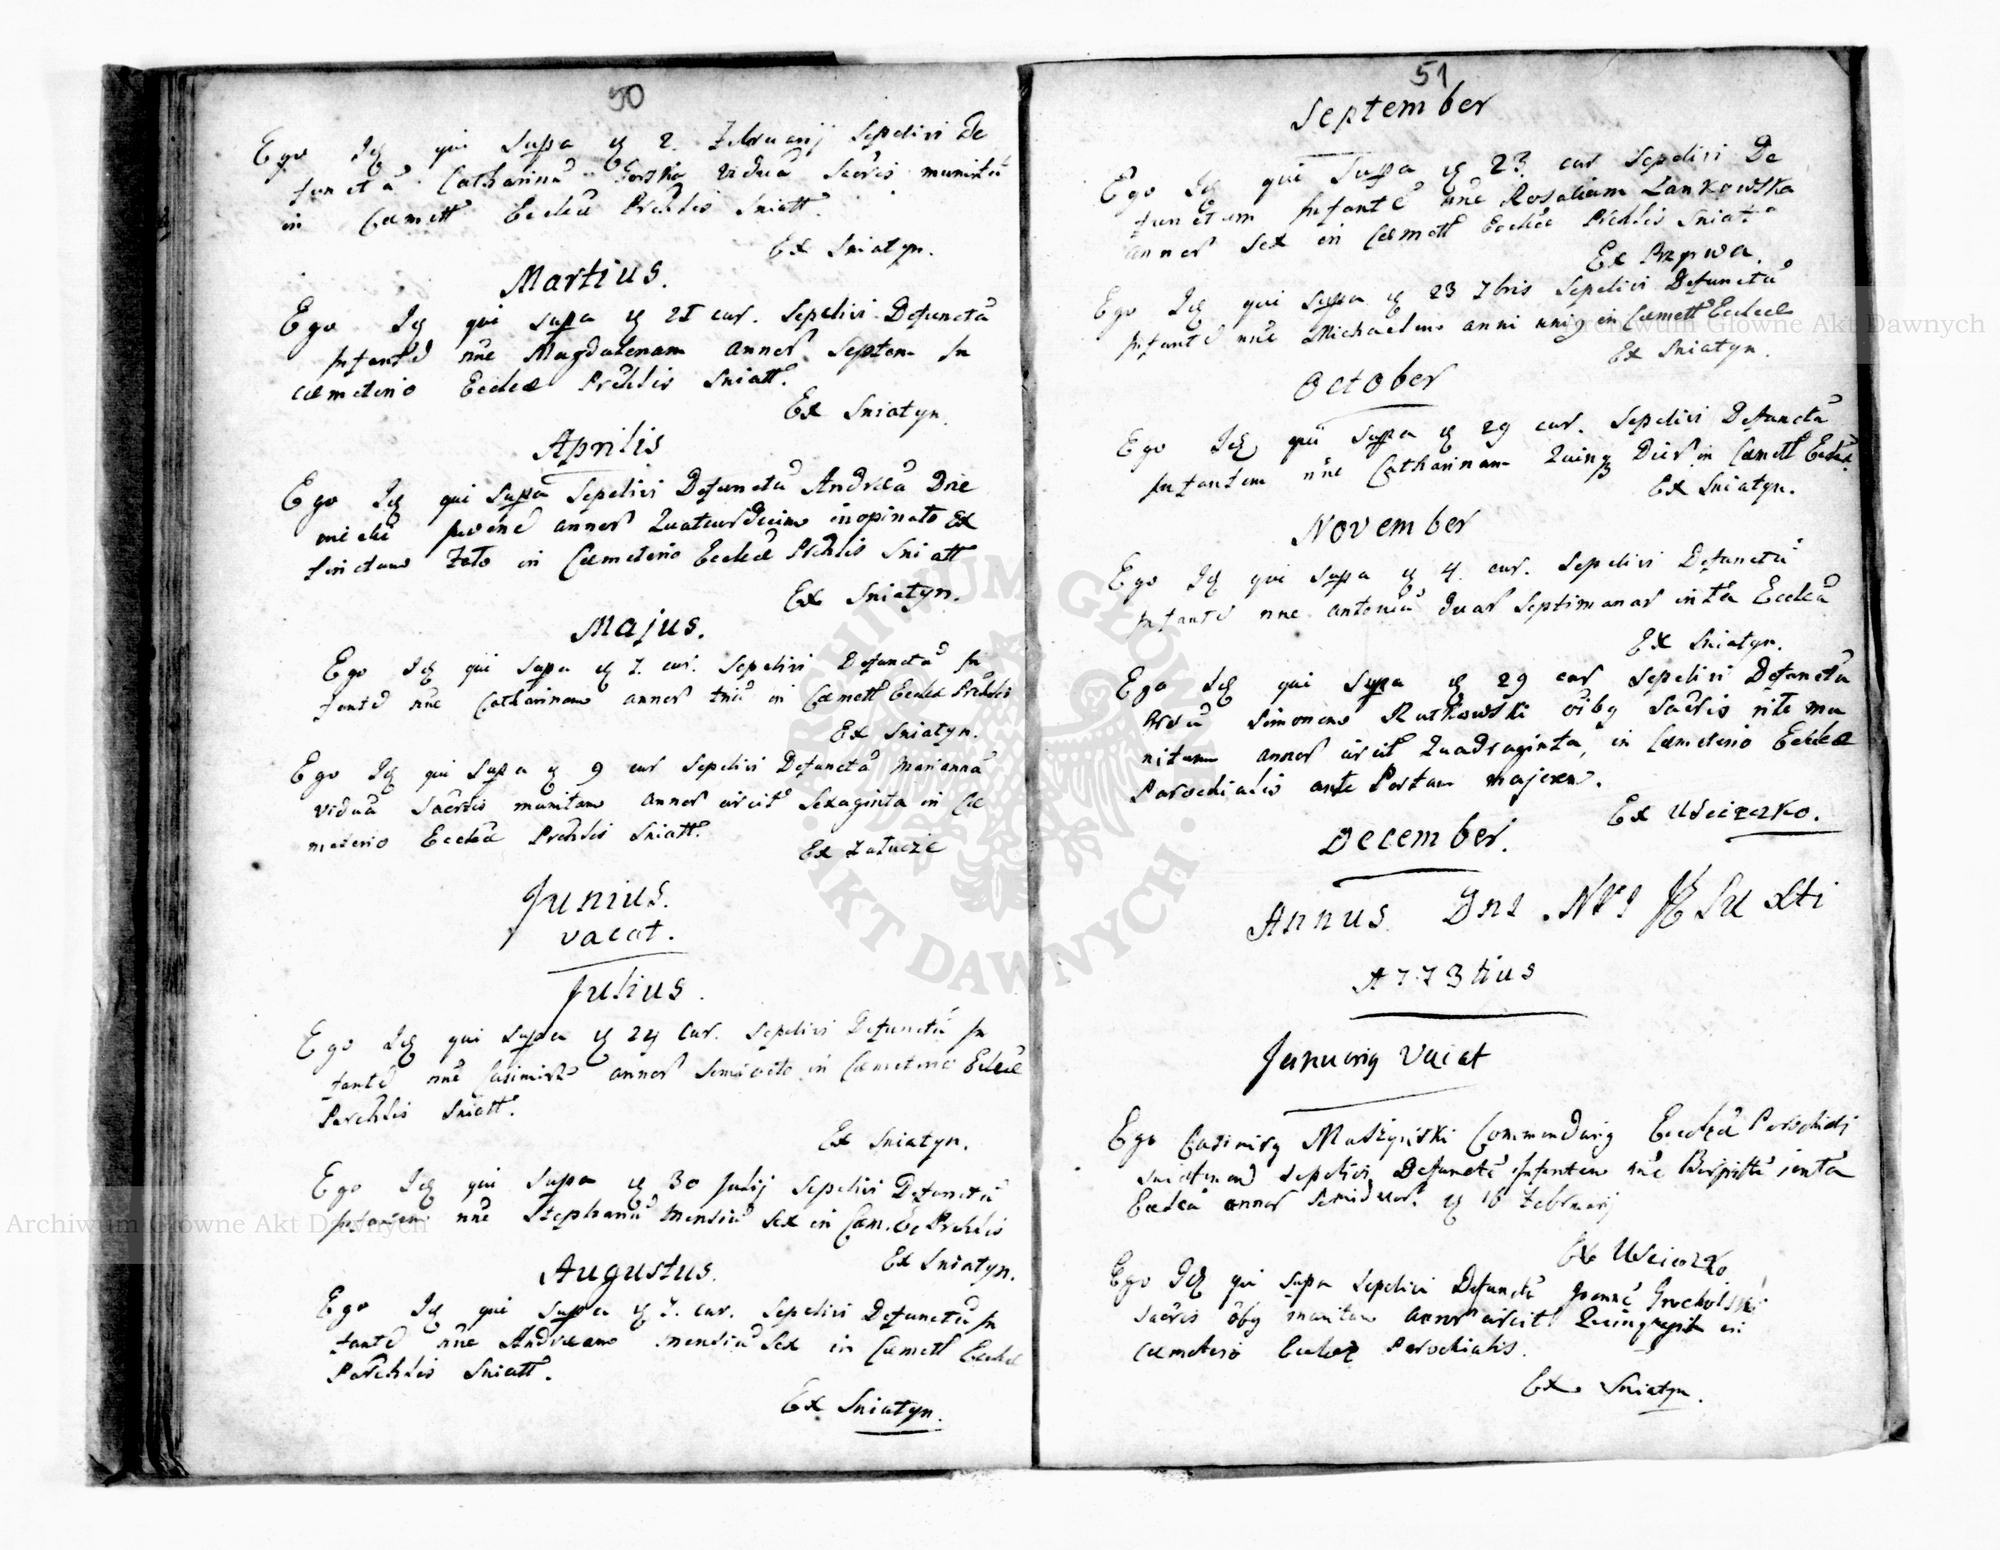 50
Ego Idem qui supra d 2. Februarij Sepelivi De
functã Catharinã Gorska viduã Sacris munitã
in Cæmett Ecclæ Prchlis Sniatt.
Ex Sniatyn.
Martius.
Ego Id qui supra d 21 cur. Sepelivi Defunctã
Infantẽ nñe Magdalenam annor Septem In
cæmeterio Ecclæ Prchlis Sniatt.
Ex Sniatyn.
Aprilis
Ego Id qui supra Sepelivi Defunctũ Andreã
annor Quatuordecim inopinato Ex
tinctum in Cæmeterio Ecclæ Prchlis Sniatt
Ex Sniatyn.
Majus.
Ego Id qui supra d 7. cur. Sepelivi Defunctã In
fantẽ nñe Catharinam annor triũ in Cæmett Ecclæ Prchlis
Ex Sniatyn.
Ego Id qui supra d 9 cur Sepelivi Defunctã Mariannã
viduã Sacris munitam annor circitr Sexaginta in Cæ
meterio Ecclæ Prchlis Sniatt.
Ex Zalucze
Junius.
vacat.
Julius.
Ego Id qui supra d 24 Cur. Sepelivi Defunctũ In
fantẽ nñe Casimirũ annor in Cæmeterio Ecclæ
Parchlis Sniatt.
Ex Sniatyn.
Ego Id qui supra d 30 Julij Sepelivi Defunctũ
Infantem nñe Stephanũ Mensiũ Sex in Cæm. Ec Prchlis
Ex Sniatyn.
Augustus.
Ego Id qui supra d 7. cur. Sepelivi Defunctũ In
fantẽ nñe Andream mensiũ Sex in Cæmett Ecclæ
Parchlis Sniatt.
Ex Sniatyn.
51
September
Ego Id qui supra d 23. cur Sepelivi De
functam Infantẽ nñe Rosaliam Lankowska
annor sex in Cæmett Ecclæ Prchlis Sniat.
Ex
Ego Id qui supra d 23 7bris Sepelivi Defunctũ
Infantẽ nñe Michaelem anni unig in Cæmett Ecclæ
Ex Sniatyn.
October
Ego Id qui supra d 29 cur. Sepelivi Defunctã
Infantem nñe Catharinam Quinq Dier in Cæmett Ecclæ.
Ex Sniatyn.
November
Ego Id qui supra d 4. cur. Sepelivi Defunctũ
Infantẽ nñe Antoniũ duar Septimanar intra Eccleã
Ex Sniatyn.
Ego Id qui supra d 29 cur Sepelivi Defunctũ
Simonem Rutkowski oibg Sacris rite mu
nitum annor circitr Quadraginta, in Cæmeterio Ecclæ
Parochialis ante Portam majorem.
Ex Uscieczko.
December.
Annus Dni Nri JE Su Xti
1773tius
Januarig vacat
Ego Casimirg Commendarig Ecclæ Parochialis
Sniatinen Sepelivi Defunctũ Infantem nñe intra
Eccleã annor d 16 Februarij
Ex Uscieczko
Ego Id qui supra Sepelivi Defunctũ Joannẽ Grocholski
Sacris oibg munitum annor circitr in
Cæmeterio Ecclæ Parochialis.
Ex Sniatyn.
Archiwum Główne Akt Dawnych
Archiwum Główne Akt Dawnych
ARCHIWUM GŁÓWNE · AKT DAWNYCH ·